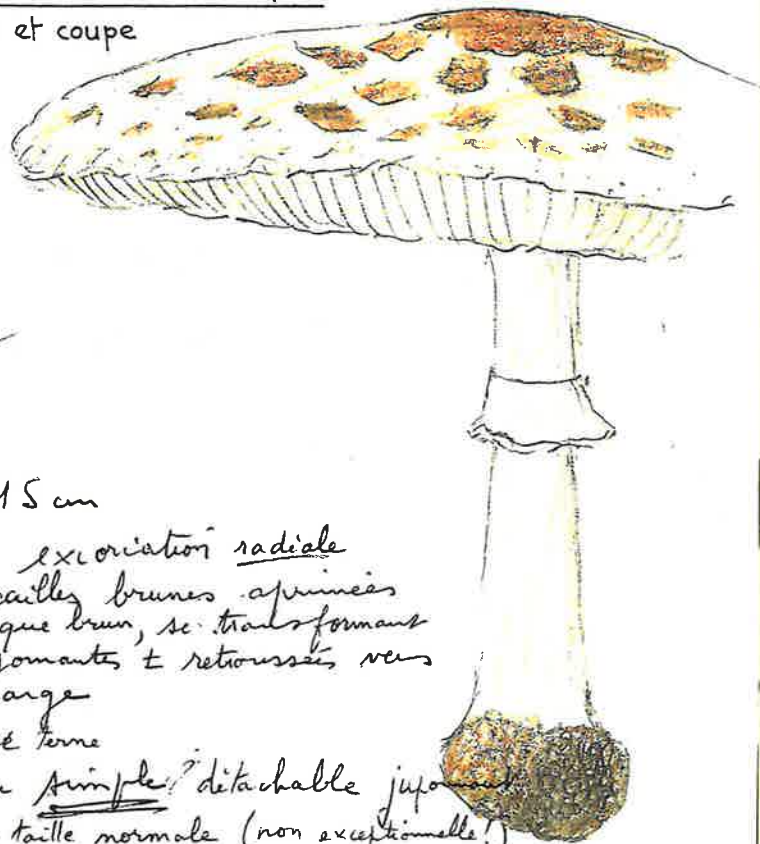 et coupe
15 cm
excoriation radiale
cailles brunes apprimées
que brun, se transformant
± retroussés vers
arge
é terne
simple ? détachable juponnant
taille normale (non exceptionnelle !)